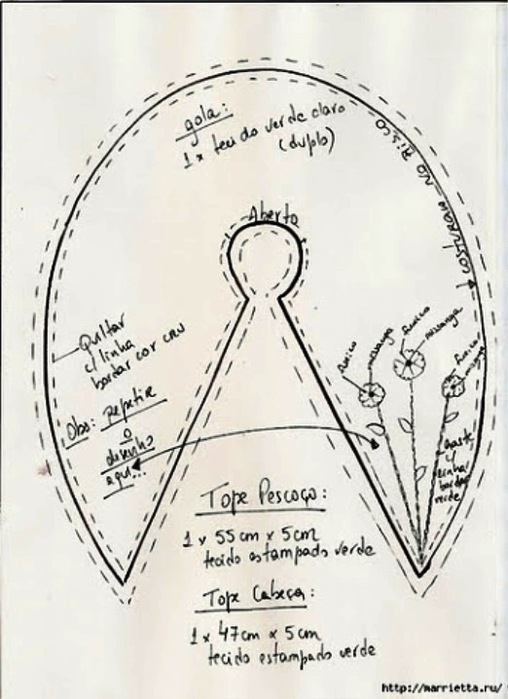 gola:
1 x tecido verde claro
(duplo)
costurar no risco
Aberto
Quiltar
c/ linha
bordar cor cru
Obs: Repetir
o
desenho
aqui...
fuxico
miçanga
fuxico
miçanga
fuxico
haste c/
linha
bordar
verde
Tope Pescoço:
1 x 55 cm x 5 cm
tecido estampado verde
Tope Cabeça:
1 x 47 cm x 5 cm
tecido estampado verde
http://marrietta.ru/